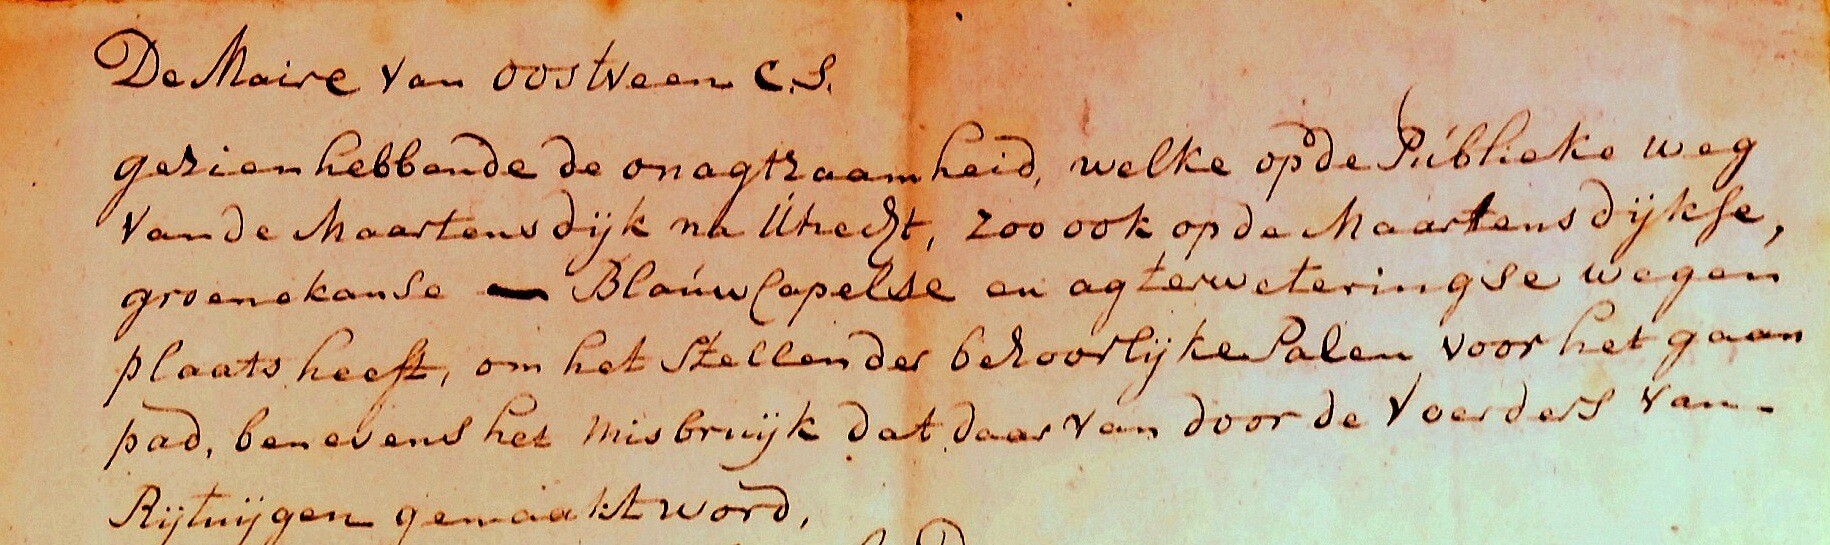 De Maire van Oostveen C.S.
gezien hebbende de onagtzaamheid, welke op de Publieke weg
van de Maartensdijk na Utrecht, zoo ook op de Maartensdijkse,
groenekanse — Blauw Capelse en agterweteringse wegen
plaats heeft, om het stellen der behoorlijke Palen voor het gaan
pad, benevens het misbruijk dat daar van door de Voerders van
Rijtuijgen gemaakt word,